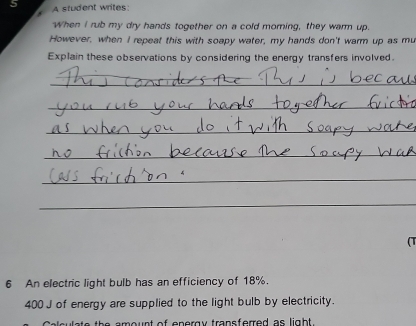 S
A student writes:
When I rub my dry hands together on a cold morning, they warm up.
However, when I repeat this with soapy water, my hands don't warm up as mu
Explain these observations by considering the energy transfers involved.
This considers the This is becaus
you rub your hands together frictio
as when you do it with soapy water
no friction because the soapy wat
less friction.
(T
6 An electric light bulb has an efficiency of 18%.
400 J of energy are supplied to the light bulb by electricity.
Calculate the amount of energy transferred as light.